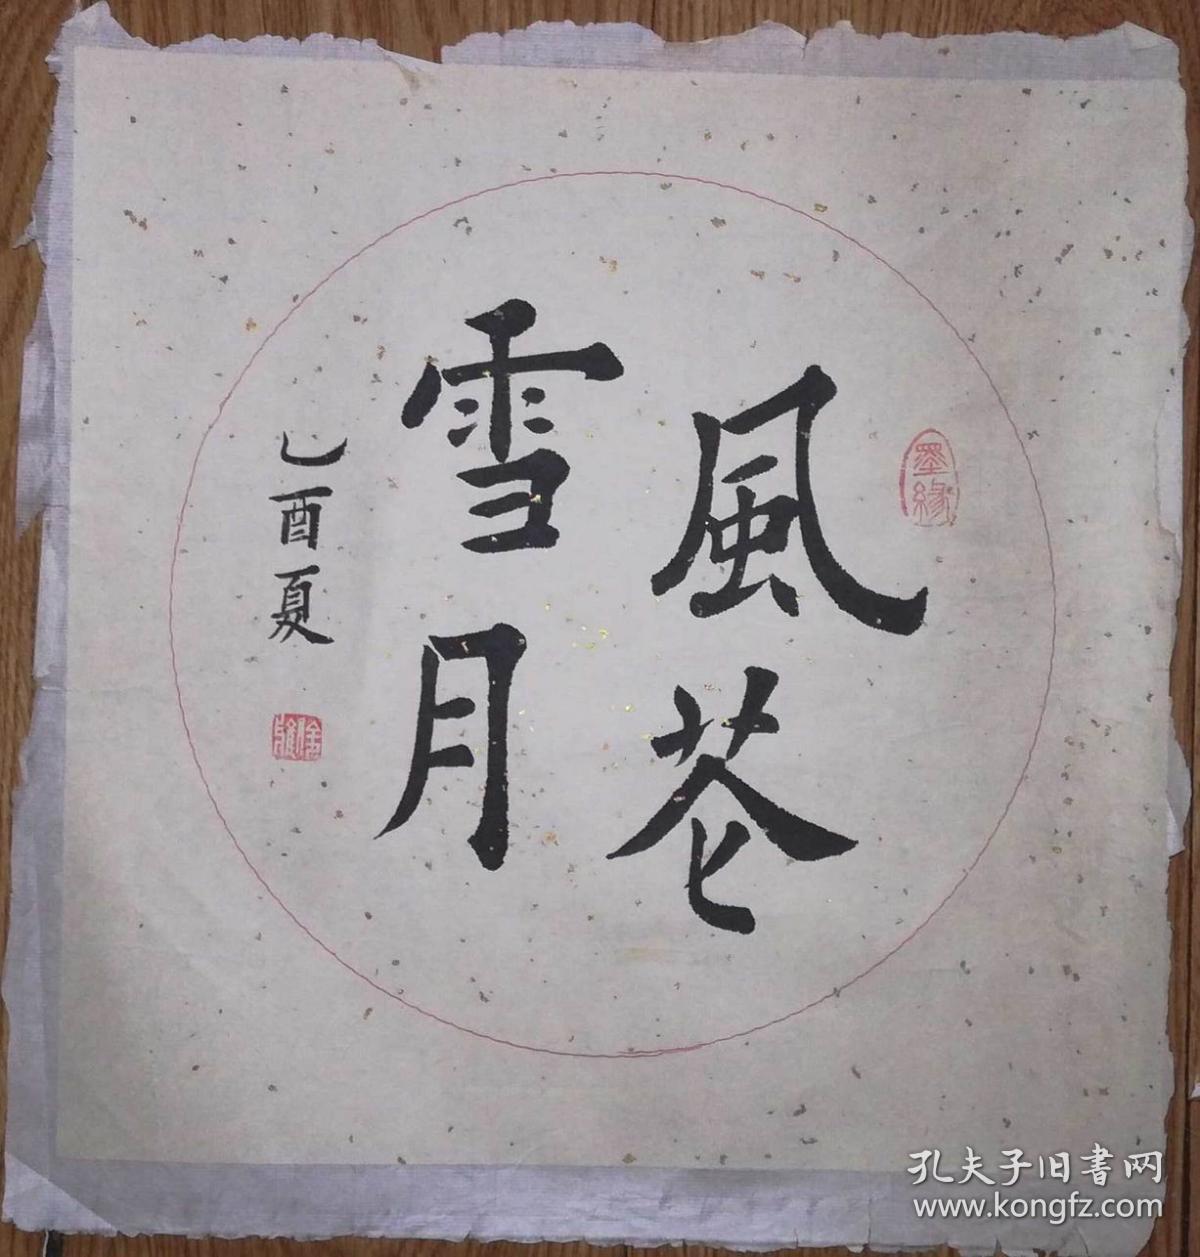 墨緣
風花
雪月
乙酉夏
孔夫子旧書网
www.kongfz.com